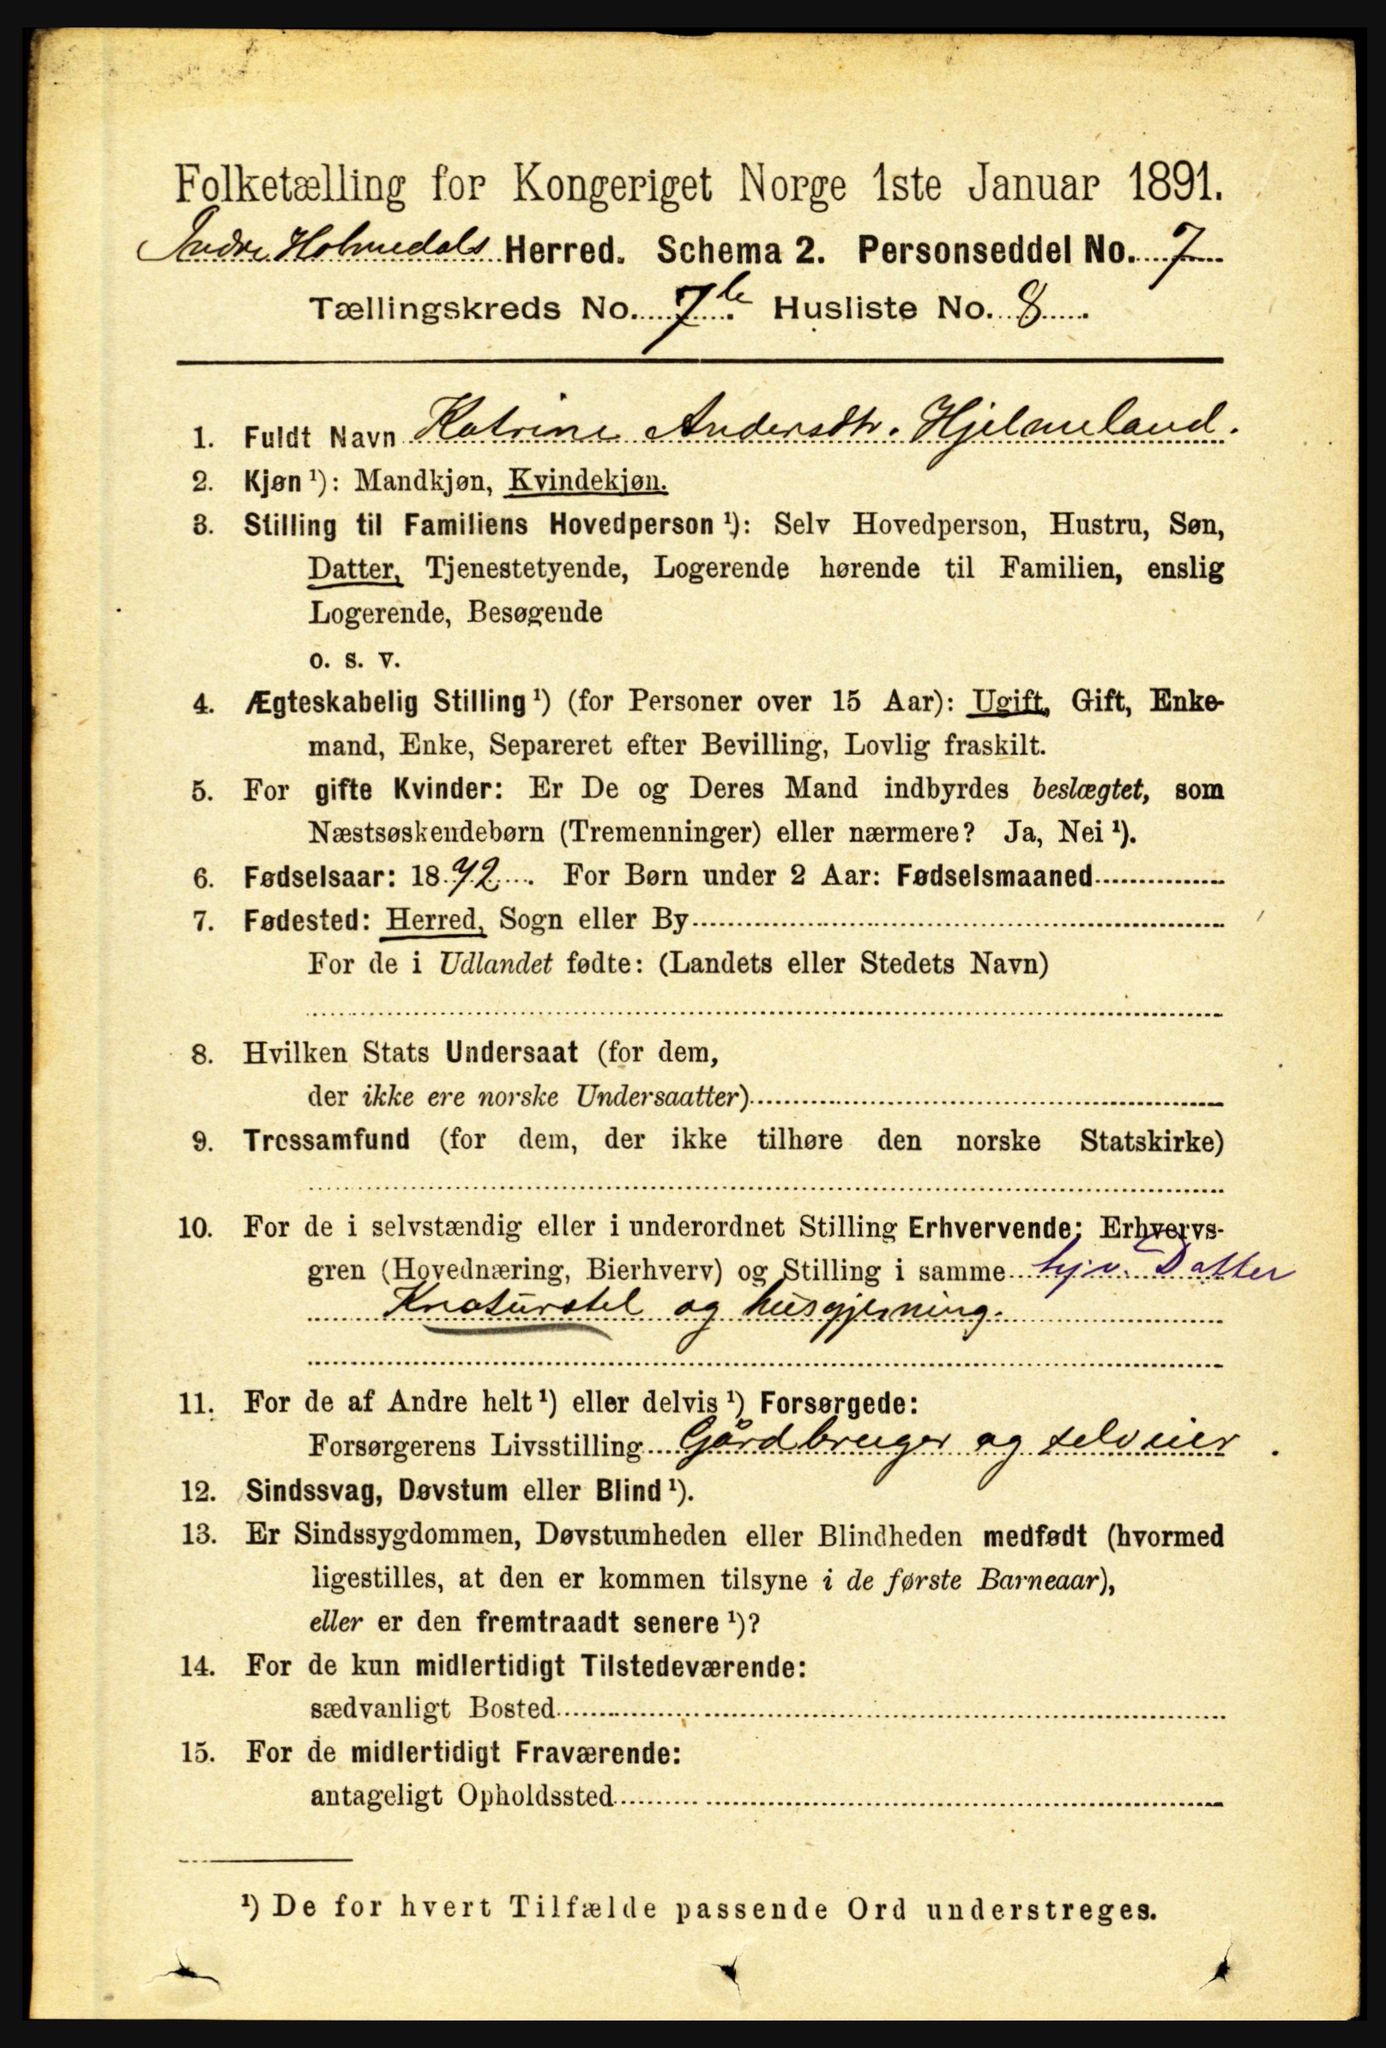 Folketælling for Kongeriget Norge 1ste Januar 1891.
Indre Holmedals Herred. Schema 2. Personseddel No. 7
Tællingskreds No. 7b. Husliste No. 8.
1. Fuldt Navn Katrine Andersdtr. Hjelmeland.
2. Kjøn ¹): Mandkjøn, Kvindekjøn.
3. Stilling til Familiens Hovedperson ¹): Selv Hovedperson, Hustru, Søn,
Datter, Tjenestetyende, Logerende hørende til Familien, enslig
Logerende, Besøgende
o. s. v.
4. Ægteskabelig Stilling ¹) (for Personer over 15 Aar): Ugift, Gift, Enke-
mand, Enke, Separeret efter Bevilling, Lovlig fraskilt.
5. For gifte Kvinder: Er De og Deres Mand indbyrdes beslægtet, som
Næstsøskendebørn (Tremenninger) eller nærmere? Ja, Nei ¹).
6. Fødselsaar: 1872. For Børn under 2 Aar: Fødselsmaaned
7. Fødested: Herred, Sogn eller By
For de i Udlandet fødte: (Landets eller Stedets Navn)
8. Hvilken Stats Undersaat (for dem,
der ikke ere norske Undersaatter)
9. Trossamfund (for dem, der ikke tilhøre den norske Statskirke)
10. For de i selvstændig eller i underordnet Stilling Erhvervende: Erhvervs-
gren (Hovednæring, Bierhverv) og Stilling i samme hjv. Datter
Kreaturstel og husgjerning.
11. For de af Andre helt ¹) eller delvis ¹) Forsørgede:
Forsørgerens Livsstilling Gårdbruger og selveier.
12. Sindssvag, Døvstum eller Blind ¹).
13. Er Sindssygdommen, Døvstumheden eller Blindheden medfødt (hvormed
ligestilles, at den er kommen tilsyne i de første Barneaar),
eller er den fremtraadt senere ¹)?
14. For de kun midlertidigt Tilstedeværende:
sædvanligt Bosted
15. For de midlertidigt Fraværende:
antageligt Opholdssted
¹) De for hvert Tilfælde passende Ord understreges.